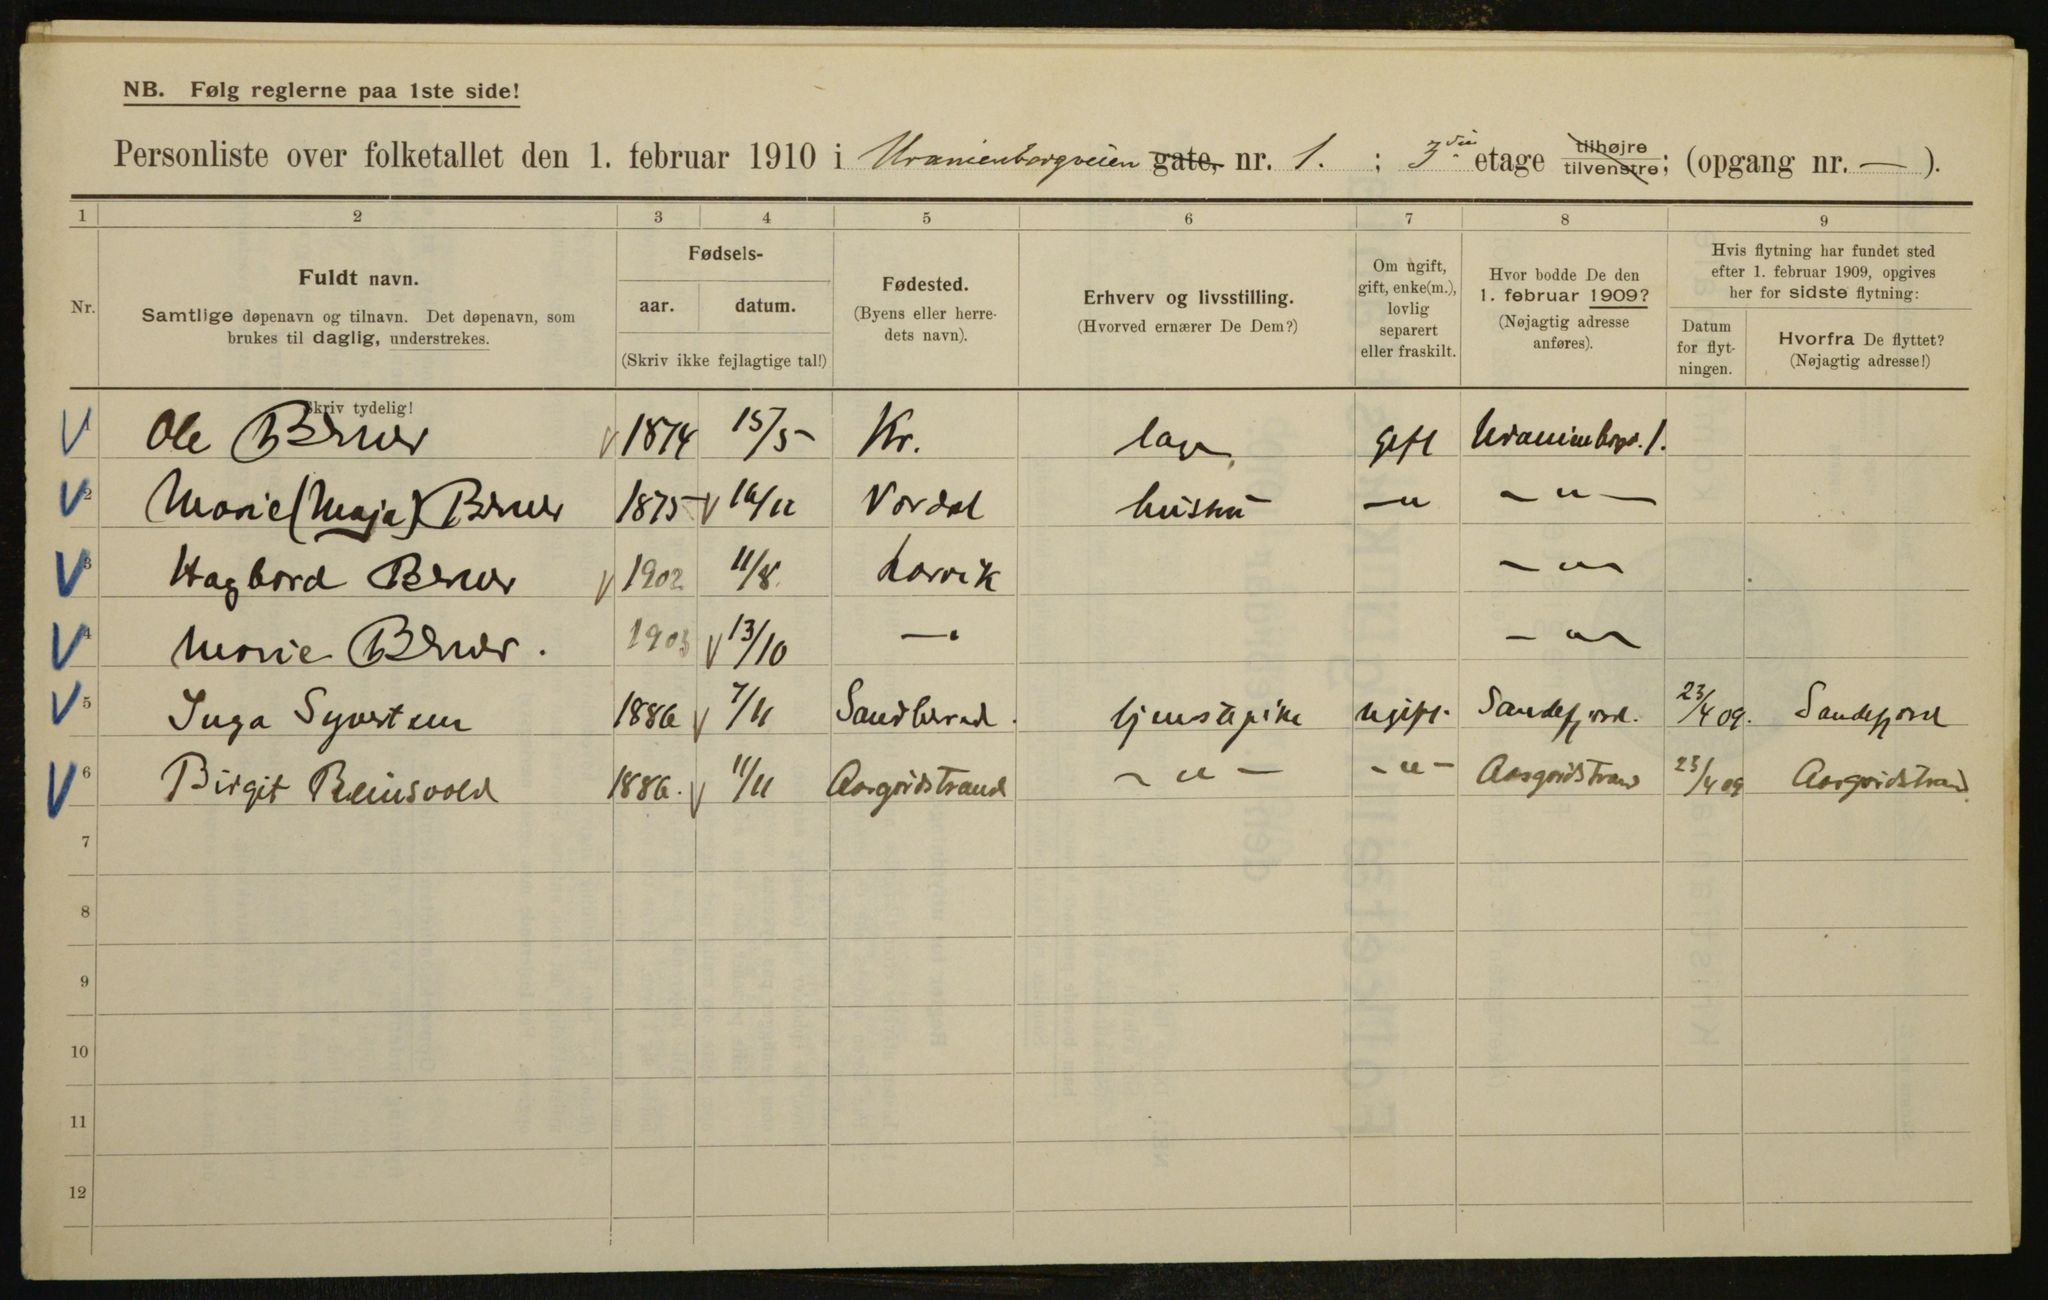 NB. Følg reglerne paa 1ste side!
Personliste over folketallet den 1. februar 1910 i Uranienborgveien gate, nr. 1. ; 3die etage tilhøjre tilvenstre; (opgang nr. — ).
1 2 3 4 5 6 7 8 9
Nr.
Fuldt navn.
Samtlige døpenavn og tilnavn. Det døpenavn, som
brukes til daglig, understrekes.
Fødsels-
aar. datum.
(Skriv ikke fejlagtige tal!)
Fødested.
(Byens eller herre-
dets navn).
Erhverv og livsstilling.
(Hvorved ernærer De Dem?)
Om ugift,
gift, enke(m.),
lovlig
separert
eller fraskilt.
Hvor bodde De den
1. februar 1909?
(Nøjagtig adresse
anføres).
Hvis flytning har fundet sted
efter 1. februar 1909, opgives
her for sidste flytning:
Datum
for flyt-
ningen.
Hvorfra De flyttet?
(Nøjagtig adresse!)
Skriv tydelig!
1 Ole Berner 1874 15/5 Kr. læge gift Uranienborgv. 1.
2 Marie (Maja) Berner 1875 16/11 hustru —„ — „ —
3 Hagbard Berner 1902 11/8 Larvik — „ —
4 Marie Berner. 1903 13/10 —„ — „ —
5 Inga Syvertsen 1886 7/11 Sandherred. tjenstepike ugift. Sandefjord. 23/4 09. Sandefjord
6 Birgit 1886. 11/11 Aasgardstrand — „ — — „ — Aasgardstrand 23/4 09 Aasgardstrand
7
8
9
10
11
12